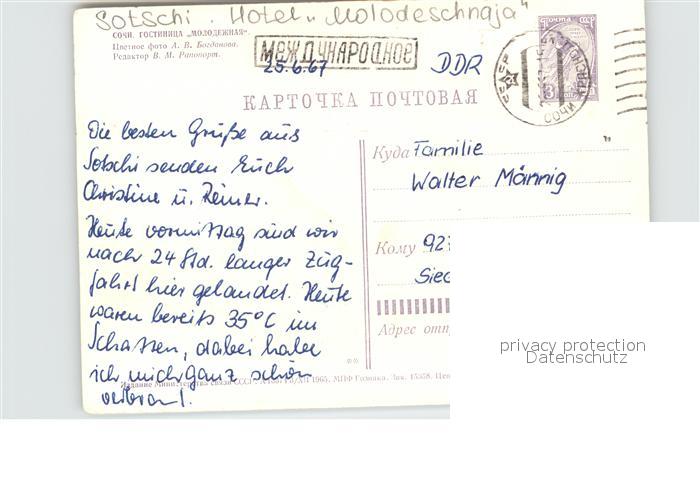 Sotschi. Hotel "Molodeschnaja"
СОЧИ. ГОСТИНИЦА „МОЛОДЕЖНАЯ".
Цветное фото А. В. Богданова.
Редактор В. М. Рапопорт.
МЕЖДУНАРОДНОЕ
25.6.67
DDR
ПОЧТА СССР
3
СССР
СОЧИ
КАРТОЧКА ПОЧТОВАЯ
Die besten Grüße aus
Sotschi senden Euch
Christine u. Reiner.
Heute vormittag sind wir
nach 24 Std. langer Zug-
fahrt hier gelandet. Heute
waren bereits 35°C im
Schatten, dabei habe
ich mich ganz schön
verbrannt.
Куда Familie
Walter Männig
Кому 927
Sieg
Адрес отп
privacy protection
Datenschutz
Издание Министерства связи СССР. 1965. МПФ Гознака. Зак. 15358. Цен